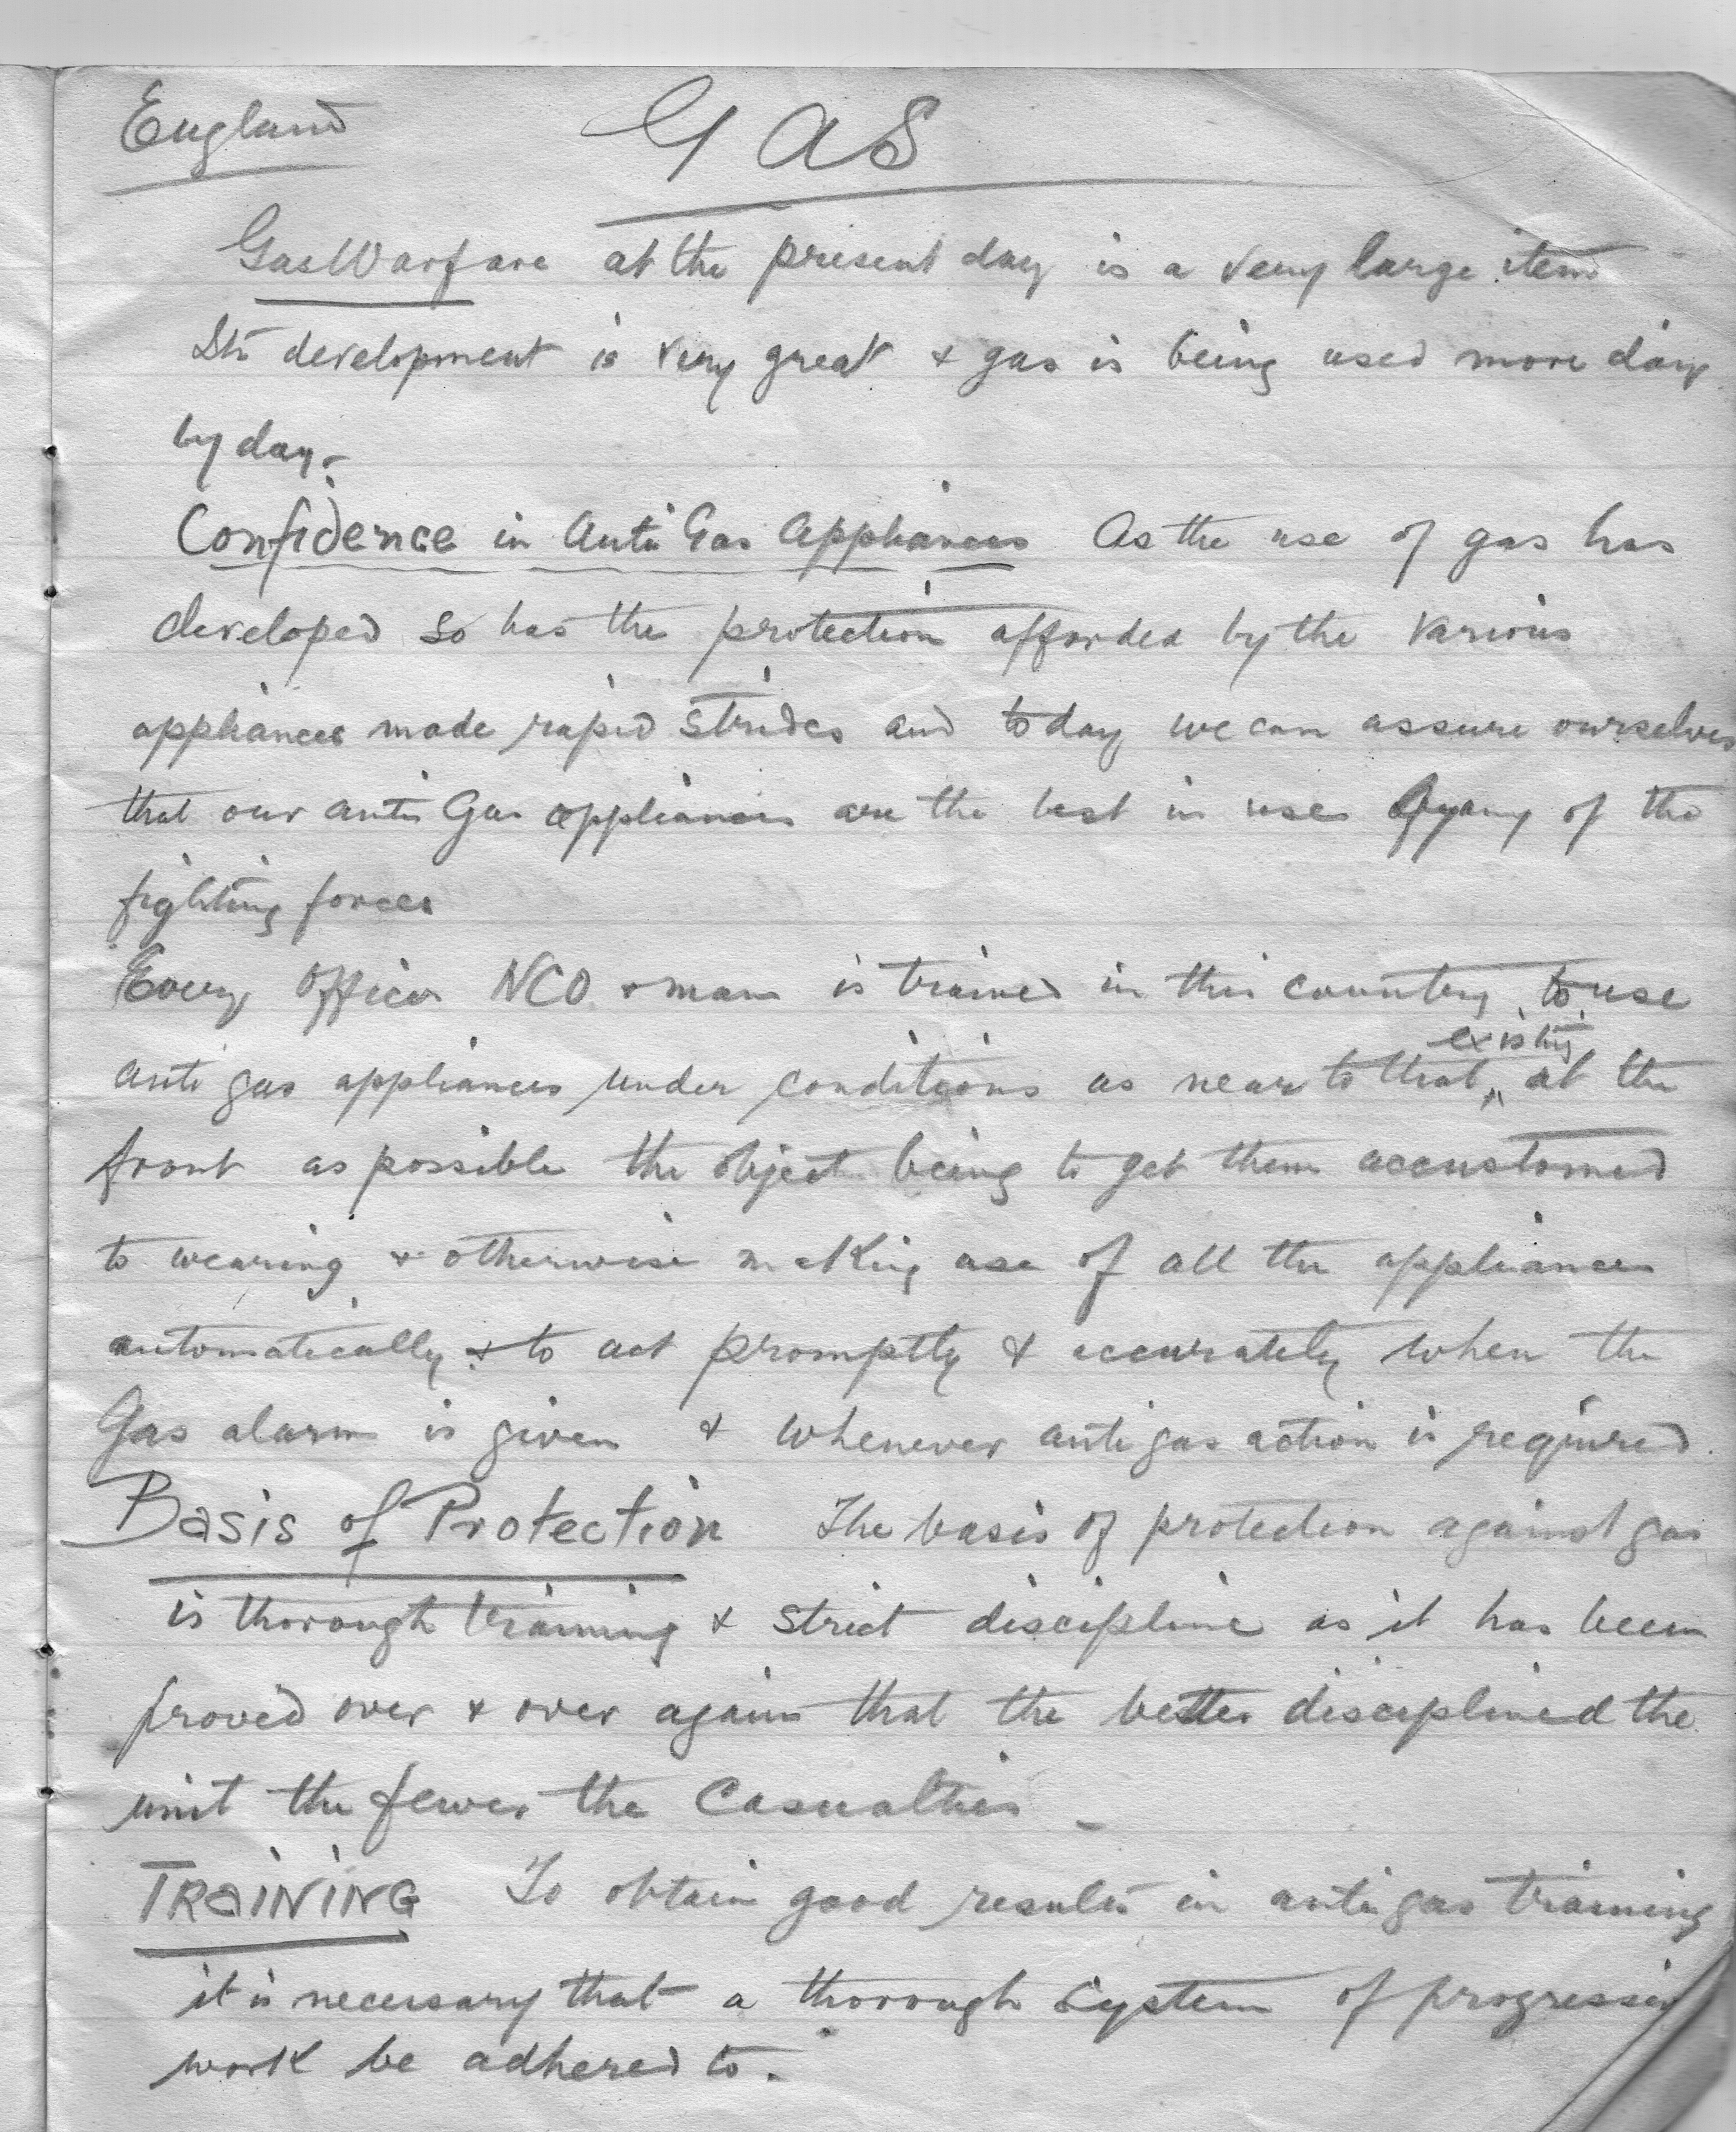 England GAS
Gas Warfare at the present day is a very large item
Its development is very great & gas is being used more day
by day.
Confidence in Anti Gas Appliances As the use of gas has
developed so has the protection afforded by the various
appliances made rapid strides and today we can assure ourselves
that our anti Gas appliances are the best in use by any of the
fighting forces
Every Officer NCO & man is trained in this country to use
existing
anti gas appliances under conditions as near to that at the
front as possible the object being to get them accustomed
to wearing & otherwise making use of all the appliances
automatically & to act promptly & accurately when the
Gas alarm is given & whenever anti gas action is required.
Basis of Protection The basis of protection against gas
is thorough training & strict discipline as it has been
proved over & over again that the better disciplined the
unit the fewer the Casualties
TRAINING To obtain good results in anti gas training
it is necessary that a thorough System of progressive
work be adhered to.